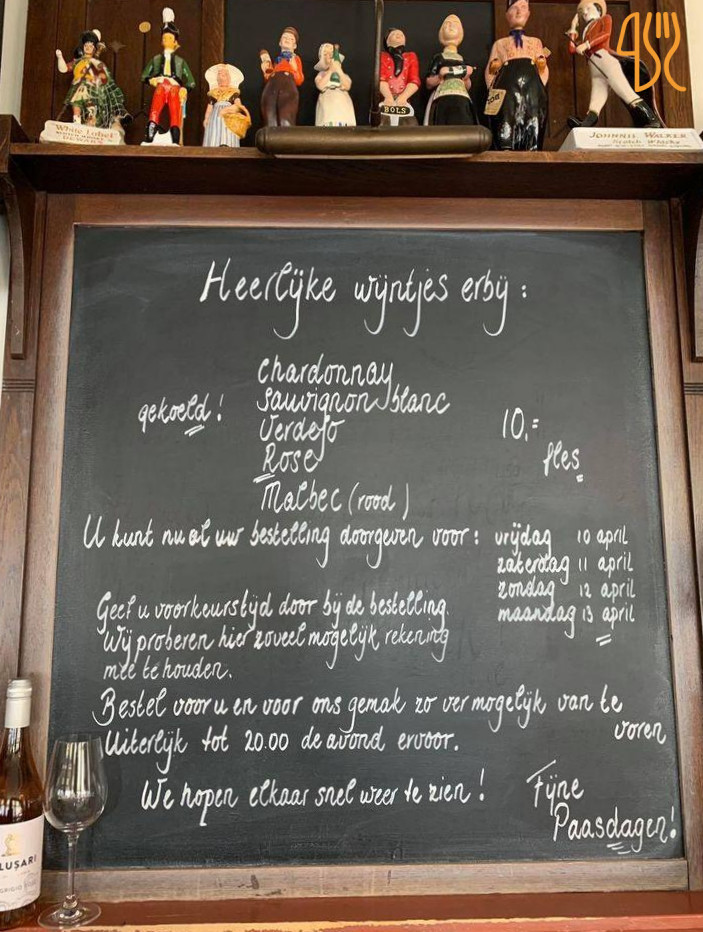 White Label
DEWAR'S
BOLS
JOHNNIE WALKER
Scotch Whisky
Heerlijke wijntjes erbij :
gekoeld !
Chardonnay
Sauvignon blanc
Verdejo
Rosé
Malbec (rood)
10,=
fles
U kunt nu al uw bestelling doorgeven voor : vrijdag 10 april
zaterdag 11 april
zondag 12 april
maandag 13 april
Geef u voorkeurstijd door bij de bestelling.
Wij proberen hier zoveel mogelijk rekening
mee te houden.
Bestel voor u en voor ons gemak zo ver mogelijk van te
voren
Uiterlijk tot 20.00 de avond ervoor.
We hopen elkaar snel weer te zien !
Fijne
Paasdagen!
LUȘARI
GRIGIO